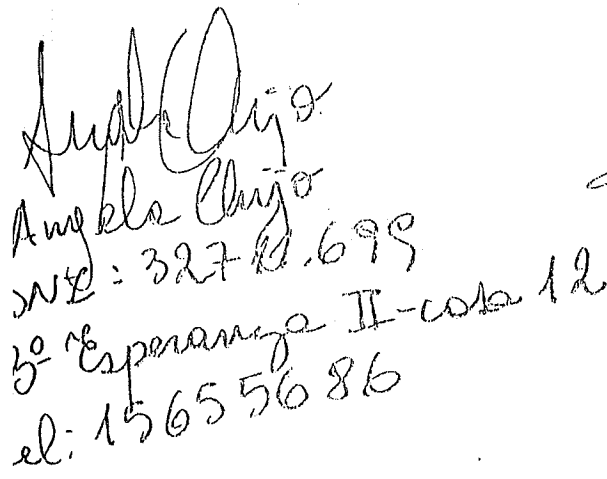 Angela Clujo
Angela Clujo
DNI: 327 .699
Bº "Esperanza II-casa 12
el: 15655686